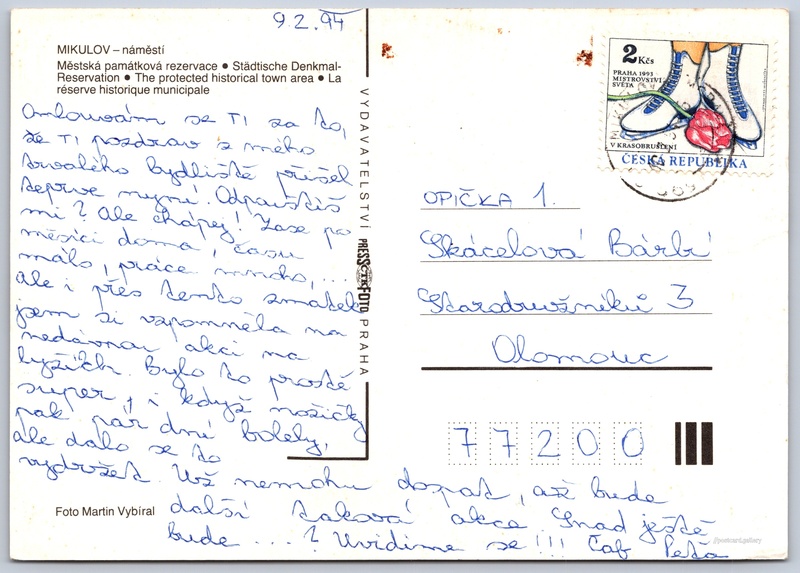 9.2.94
MIKULOV – náměstí
Městská památková rezervace ● Städtische Denkmal-
Reservation ● The protected historical town area ● La
réserve historique municipale
Omlouvám se Ti za to,
že Ti pozdrav z mého
trvalého bydliště přišel
teprve nyní! Odpustíš
mi? Ale chápej! Zase po
měsíci doma, času
málo, práce mnoho,...
ale i přes tento zmatek
jsem si vzpomněla na
nedávnou akci na
lyžích. Bylo to prostě
super, i když nožičky
pak pár dní bolely,
ale dalo se to
vydržet. Už nemohu dospat, až bude
další taková akce. Snad ještě
bude ...? Uvidíme se!!! Čaf Peťa
Foto Martin Vybíral
VYDAVATELSTVÍ PRESSFOTO PRAHA
2 Kčs
PRAHA 1993
MISTROVSTVÍ
SVĚTA
V KRASOBRUSLENÍ
ČESKÁ REPUBLIKA
OPIČKA 1.
Skácelová Bárbí
Starodružiníků 3
Olomouc
77200